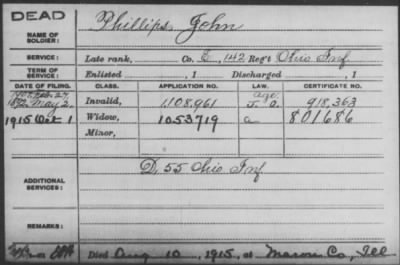 DEAD
NAME OF SOLDIER: Phillips, John
SERVICE: Late rank, Co. E, 142 Reg't Ohio Inf
TERM OF SERVICE: Enlisted , 1 Discharged , 1
DATE OF FILING. CLASS. APPLICATION NO. LAW. CERTIFICATE NO.
1892 May 2, Invalid, 1,108,961 918,363
1915 Oct 1 Widow, 1053719 a 801686
Minor,
ADDITIONAL SERVICES: D, 55 Ohio Inf
REMARKS:
Died Aug 10, 1915, at Macon Co, Ill